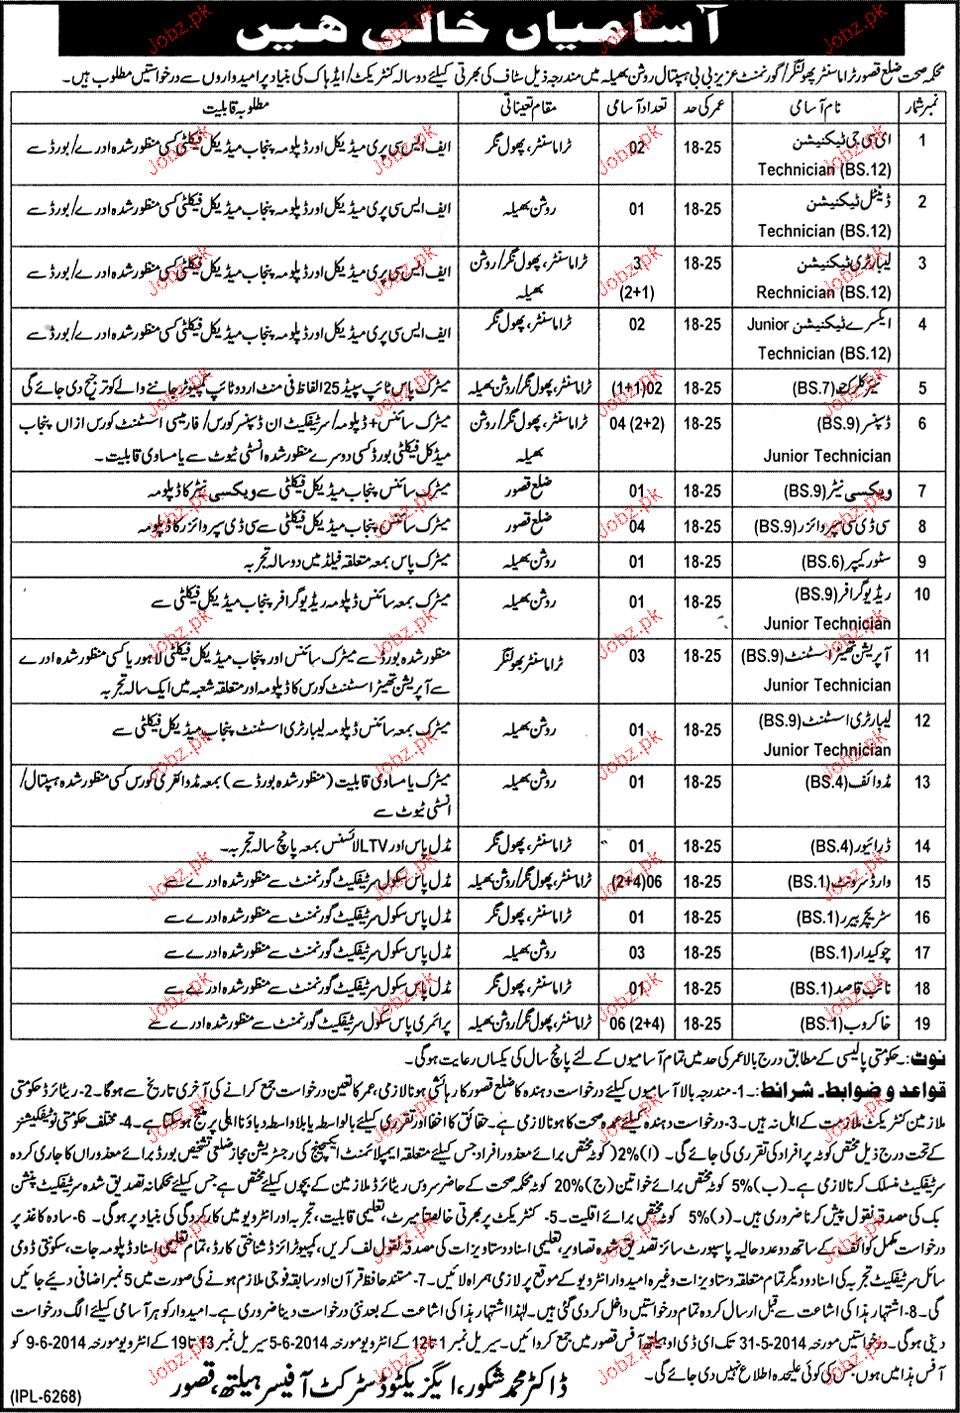 آسامیاں خالی ھیں
محکمہ صحت ضلع قصور ٹراما سنٹر پھولنگر/گورنمنٹ عزیز بی بی ہسپتال روشن بھیلہ میں مندرجہ ذیل سٹاف کی بھرتی کیلئے دو سالہ کنٹریکٹ/ایڈہاک کی بنیاد پر امیدواروں سے درخواستیں مطلوب ہیں۔
نمبر شمار نام آسامی عمر کی حد تعداد آسامی مقام تعیناتی مطلوبہ قابلیت
1 ای سی جی ٹیکنیشن Technician (BS.12) 18-25 02 ٹراما سنٹر، پھول نگر ایف ایس سی پری میڈیکل اور ڈپلومہ پنجاب میڈیکل فیکلٹی کسی منظور شدہ ادرے/بورڈ سے
2 ڈینٹل ٹیکنیشن Technician (BS.12) 18-25 01 روشن بھیلہ ایف ایس سی پری میڈیکل اور ڈپلومہ پنجاب میڈیکل فیکلٹی کسی منظور شدہ ادرے/بورڈ سے
3 لیبارٹری ٹیکنیشن Rechnician (BS.12) 18-25 3 (2+1) ٹراما سنٹر، پھول نگر/روشن بھیلہ ایف ایس سی پری میڈیکل اور ڈپلومہ پنجاب میڈیکل فیکلٹی کسی منظور شدہ ادرے/بورڈ سے
4 ایکسرے ٹیکنیشن Junior Technician (BS.12) 18-25 02 ٹراما سنٹر، پھول نگر ایف ایس سی پری میڈیکل اور ڈپلومہ پنجاب میڈیکل فیکلٹی کسی منظور شدہ ادرے/بورڈ سے
5 (BS.7) 18-25 02(1+1) ٹراما سنٹر، پھول نگر/روشن بھیلہ میٹرک پاس ٹائپ سپیڈ 25 الفاظ فی منٹ اردو ٹائپ کمپیوٹر جاننے والے کو ترجیح دی جائے گی
6 ڈسپنسر (BS.9) Junior Technician 18-25 04 (2+2) ٹراما سنٹر، پھول نگر/روشن بھیلہ میٹرک سائنس+ڈپلومہ/سرٹیفکیٹ ان ڈسپنسر کورس/فارمیسی اسسٹنٹ کورس ازاں پنجاب میڈکل فیکلٹی بورڈ کسی دوسرے منظور شدہ انسٹی ٹیوٹ سے یا مساوی قابلیت۔
7 ویکسی نیٹر (BS.9) 18-25 01 ضلع قصور میٹرک سائنس پنجاب میڈیکل فیکلٹی سے ویکسی نیٹر کا ڈپلومہ
8 سی ڈی سی سپروائزر (BS.9) 18-25 04 ضلع قصور میٹرک سائنس پنجاب میڈیکل فیکلٹی سے سی ڈی سپروائزر کا ڈپلومہ
9 سٹور کیپر (BS.6) 18-25 01 روشن بھیلہ میٹرک پاس بمعہ متعلقہ فیلڈ میں دو سالہ تجربہ
10 ریڈیو گرافر (BS.9) Junior Technician 18-25 01 روشن بھیلہ میٹرک بمعہ سائنس ڈپلومہ ریڈیو گرافر پنجاب میڈیکل فیکلٹی سے
11 آپریشن تھیٹر اسسٹنٹ (BS.9) Junior Technician 18-25 03 ٹراما سنٹر پھولنگر منظور شدہ بورڈ سے میٹرک سائنس اور پنجاب میڈیکل فیکلٹی لاہور یا کسی منظور شدہ ادرے سے آپریشن تھیٹر اسسٹنٹ کورس کا ڈپلومہ اور متعلقہ شعبہ میں ایک سالہ تجربہ
12 لیبارٹری اسسٹنٹ (BS.9) Junior Technician 18-25 01 روشن بھیلہ میٹرک بمعہ سائنس ڈپلومہ لیبارٹری اسسٹنٹ پنجاب میڈیکل فیکلٹی سے
13 مڈوائف (BS.4) 18-25 01 روشن بھیلہ میٹرک یا مساوی قابلیت (منظور شدہ بورڈ سے) بمعہ مڈوائفری کورس کسی منظور شدہ ہسپتال/انسٹی ٹیوٹ سے
14 ڈرائیور (BS.4) 18-25 01 ٹراما سنٹر، پھول نگر مڈل پاس اور LTV لائسنس بمعہ پانچ سالہ تجربہ۔
15 وارڈ سرونٹ (BS.1) 18-25 06(2+4) ٹراما سنٹر، پھول نگر/روشن بھیلہ مڈل پاس سکول سرٹیفکیٹ گورنمنٹ سے منظور شدہ ادرے سے
16 سٹریچر بیرر (BS.1) 18-25 01 ٹراما سنٹر، پھول نگر مڈل پاس سکول سرٹیفکیٹ گورنمنٹ سے منظور شدہ ادرے سے
17 چوکیدار (BS.1) 18-25 03 روشن بھیلہ مڈل پاس سکول سرٹیفکیٹ گورنمنٹ سے منظور شدہ ادرے سے
18 نائب قاصد (BS.1) 18-25 01 ٹراما سنٹر، پھول نگر مڈل پاس سکول سرٹیفکیٹ گورنمنٹ سے منظور شدہ ادرے سے
19 خاکروب (BS.1) 18-25 06 (2+4) ٹراما سنٹر، پھول نگر/روشن بھیلہ پرائمری پاس سکول سرٹیفکیٹ گورنمنٹ سے منظور شدہ ادرے سے
نوٹ:۔ حکومتی پالیسی کے مطابق درج بالا عمر کی حد میں تمام آسامیوں کے لئے پانچ سال کی یکساں رعایت ہوگی۔
قواعد و ضوابط۔ شرائط:۔ 1- مندرجہ بالا آسامیوں کیلئے درخواست دہندہ کا ضلع قصور کا رہائشی ہونا لازمی، عمر کا تعین درخواست جمع کرانے کی آخری تاریخ سے ہوگا۔ 2- ریٹائرڈ حکومتی
ملازمین کنٹریکٹ ملازمت کے اہل نہ ہیں۔ 3- درخواست دہندہ کیلئے عمدہ صحت کا ہونا لازمی ہے۔ حقائق کا اخفا اور تقرری کیلئے بالواسطہ یا بلاواسطہ دباؤ نااہلی پر منتج ہوسکتا ہے۔ 4- مختلف حکومتی نوٹیفکیشنز
کے تحت درج ذیل مختص کوٹہ پر افراد کی تقرری کی جائے گی۔ (ا) 2% کوٹہ مختص برائے معذور افراد جس کیلئے متعلقہ ایمپلائمنٹ ایکسچینج کی رجسٹریشن مجاز ضلعی تشخیص بورڈ برائے معذوراں کا جاری کردہ
سرٹیفکیٹ منسلک کرنا لازمی ہے۔ (ب) 5% کوٹہ مختص برائے خواتین (ج) 20% کوٹہ محکمہ صحت کے حاضر سروس ریٹائرڈ ملازمین کے بچوں کیلئے مختص ہے جس کیلئے محکمانہ تصدیق شدہ سرٹیفکیٹ پنشن
بک کی مصدقہ نقول پیش کرنا ضروری ہیں۔ (د) 5% کوٹہ مختص برائے اقلیت۔ 5- کنٹریکٹ پر بھرتی خالصتاً میرٹ، تعلیمی قابلیت، تجربہ اور انٹرویو میں کارکردگی کی بنیاد پر ہوگی۔ 6- سادہ کاغذ پر
درخواست مکمل کوائف کے ساتھ دو عدد حالیہ پاسپورٹ سائز تصدیق شدہ تصاویر، تعلیمی اسناد و دستاویزات کی مصدقہ نقول لف کریں، کمپیوٹرائزڈ شناختی کارڈ، تمام تعلیمی اسناد ڈپلومہ جات، سکونتی ڈومی
سائل سرٹیفکیٹ تجربہ کی اسناد و دیگر تمام متعلقہ دستاویزات وغیرہ امیدوار انٹرویو کے موقع پر لازمی ہمراہ لائیں۔ 7- مستند حافظ قرآن اور سابقہ فوجی ملازم ہونے کی صورت میں 5 نمبر اضافی دیئے جائیں
گے۔ 8- اشتہار ہذا کی اشاعت سے قبل ارسال کردہ تمام درخواستیں داخل کردی گئی ہیں۔ لہٰذا اشتہار ہذا کی اشاعت کے بعد نئی درخواست دینا ضروری ہے۔ امیدوار کو ہر آسامی کیلئے الگ درخواست
دینی ہوگی۔ درخواستیں مورخہ 31-5-2014 تک ای ڈی او ہیلتھ آفس قصور میں جمع کرائیں۔ سیریل نمبر 1 تا 12 کے انٹرویو مورخہ 5-6-2014 سیریل نمبر 13 تا 19 کے انٹرویو مورخہ 9-6-2014 کو
آفس ہذا میں ہوں جس کی کوئی علیحدہ اطلاع نہیں دی جائے گی۔
ڈاکٹر محمد شکور، ایگزیکٹو ڈسٹرکٹ آفیسر ہیلتھ، قصور
(IPL-6268)
Jobz.pk